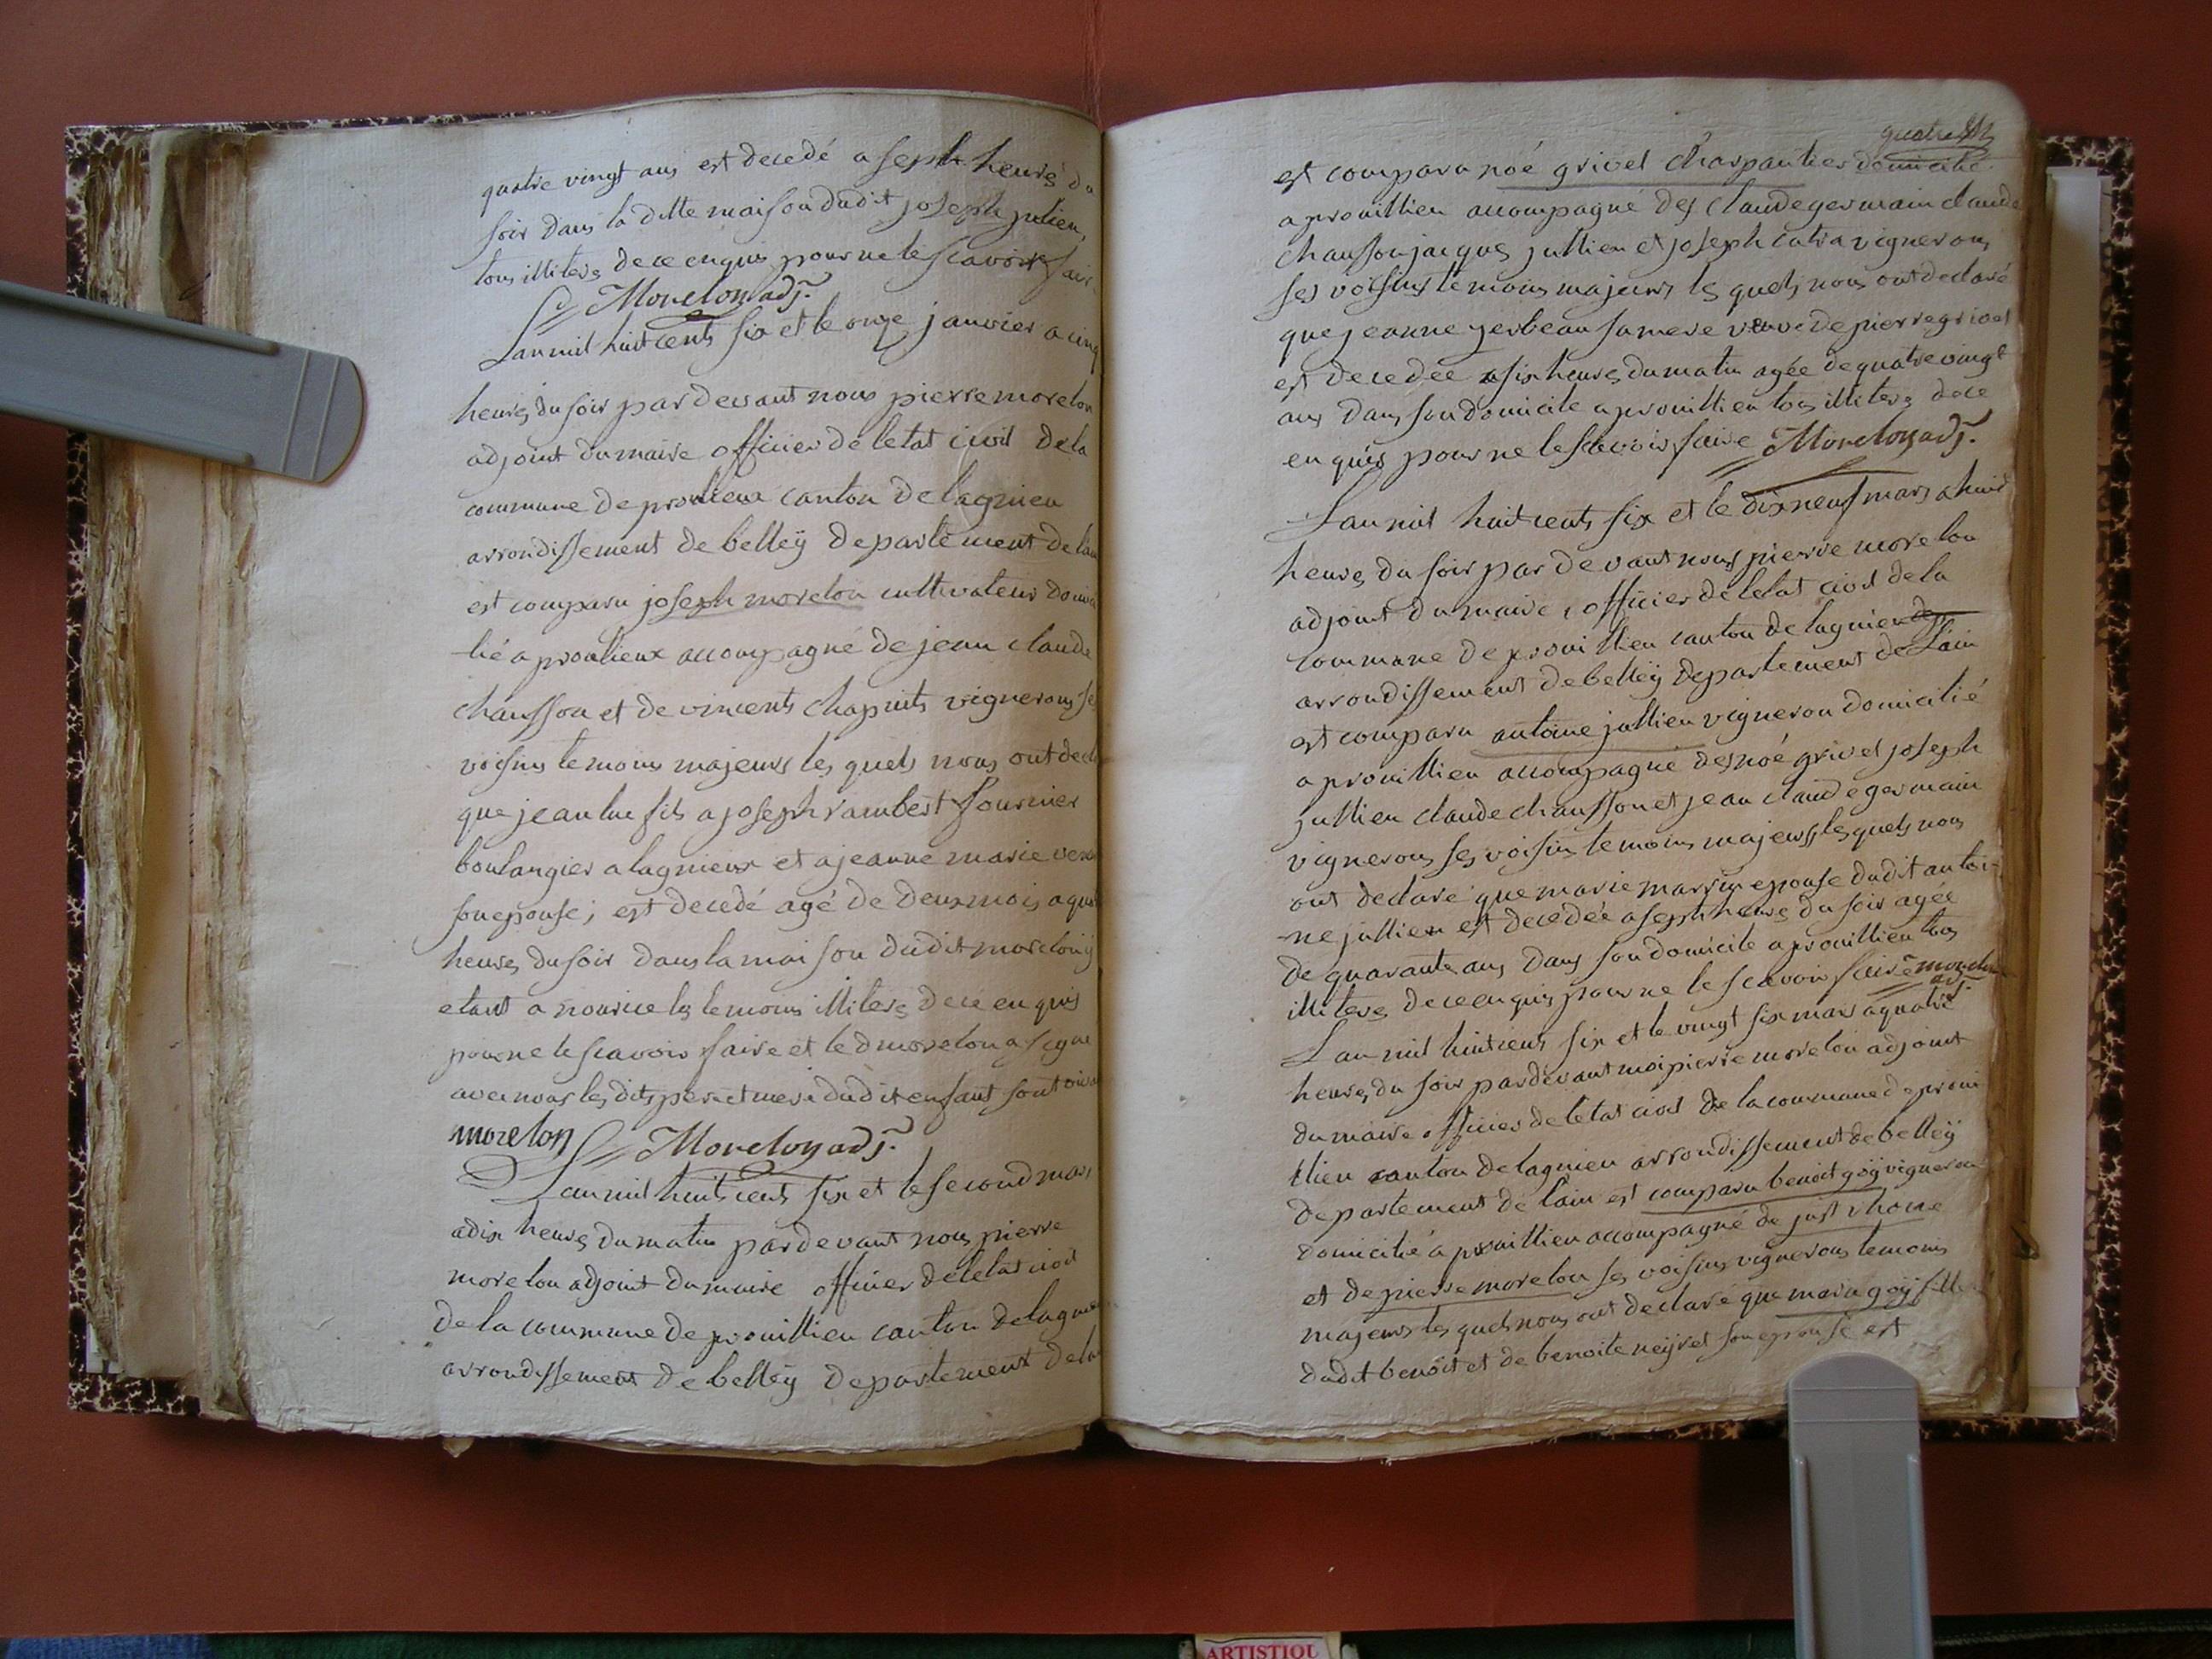 quatre vingt ans est decedé a seph heures du
soir dans la ditte maison dudit joseph julien,
tous illiteres de ce enquis pour ne le scavoir faire
Morelon adj.
Lan mil huit cents six et le onze janvier a cinq
heures du soir par devant nous pierre morelon
adjoint du maire officier de letat civil de la
commune de proulieux canton de lagnieu
arrondissement de belleÿ departement de lain
est comparu joseph morelon cultivateur domici
lié a proulieux accompagné de jean claude
chausson et de vincents chapuits vignerons ses
voisins temoins majeurs les quels nous ont decl
que jean luc fils a joseph rambert fournier
boulangier a lagnieux et a jeanne marie
son epouse; est decedé agé de deux mois a
heures du soir dans la maison dudit morelon ÿ
etant a nourice les temoins illiteres de ce enquis
pour ne le scavoir faire et led morelon a signe
avec nous les dits pere et mere dudit enfant sont
morelon Morelon adj.
Lan mil huit cents six et le second mars
a dix heures du matin par devant nous pierre
morelon adjoint du maire officier de letat civil
de la commune de prouillieu canton de lagnieu
arrondissement de belleÿ departement de la
quatre
est comparu noé grivel charpantier domicilié
a prouillieu accompagné des claude germain claude
chausson jacques jullien et joseph cutra vignerons
ses voisins temoins majeurs les quels nous ont declaré
que jeanne jerbeau sa mere veuve de pierre grivel
est decedée a six heures du matin agée de quatre vingt
ans dans son domicile a prouillieu tous illiteres de ce
en quis pour ne le scavoir faire Morelon adj.
Lan mil huit cents six et le dix neuf mars a huit
heures du soir par devant nous pierre morelon
adjoint du maire, officier de letat civil de la
commune de prouillieu canton de lagnieu
arrondissement de belleÿ departement de Lain
est comparu antoine jullien vigneron domicilié
a prouillieu accompagné des noé grivel joseph
jullien claude chausson et jean claude germain
vignerons ses voisins temoins majeurs les quels nous
ont declaré que marie epouse dudit antoi-
ne jullien est decedée a seph heures du soir agée
de quarante ans dans son domicile a prouillieu tous
illiteres de ce enquis pour ne le scavoir faire morelon
adj.
Lan mil huit cents six et le vingt six mars a quatre
heures du soir par devant moi pierre morelon adjoint
du maire officier de letat civil de la commune de proui
llieu canton de lagnieu arrondissement de belleÿ
departement de lain est comparu benoit goÿ vigneron
domicilié a prouillieu accompagné de just rhone
et de pierre morelon ses voisins vignerons temoins
majeurs les quels nous ont declaré que marie goÿ fille
dudit benoit et de benoite neÿret son epouse est
ARTISTIQU